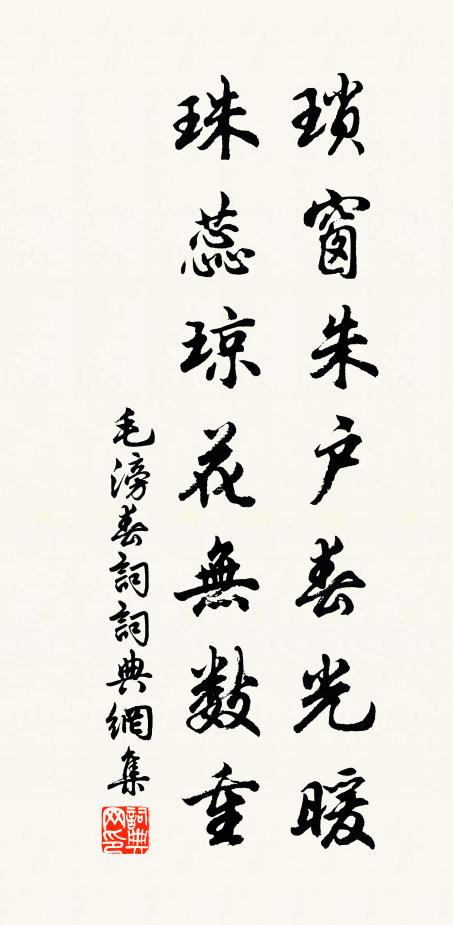 瑣窗朱户春光暖
珠蕊琼花無數重
毛滂春詞詞典網集
詞典網印